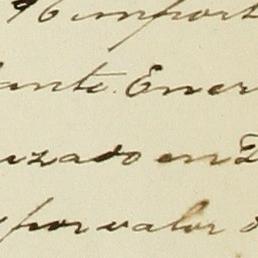 96 import
ante. Ener
uzado en
por valor